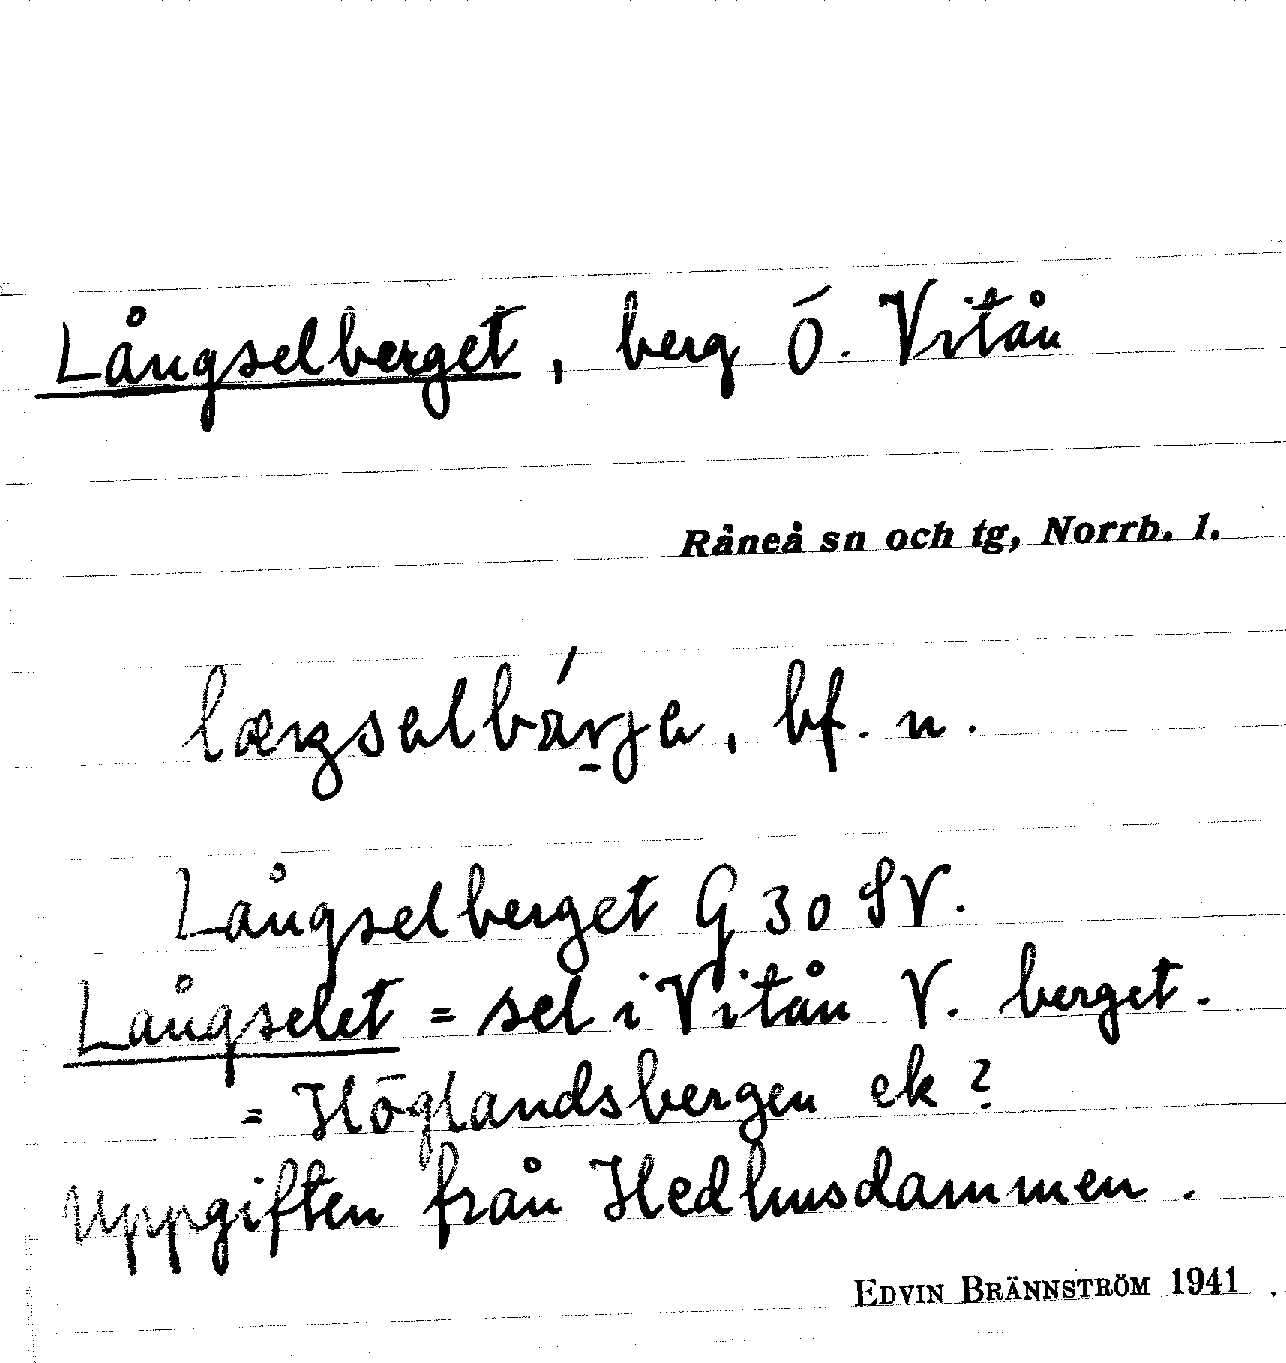 Långselberget, berg Ö. Vitån
Råneå sn och tg, Norrb. l.
bf. n.
Långselberget G 30 SV.
Långselet = sel i Vitån V. berget.
= Höglandsbergen ek?
Uppgiften från Hedhusdammen.
EDVIN BRÄNNSTRÖM 1941.